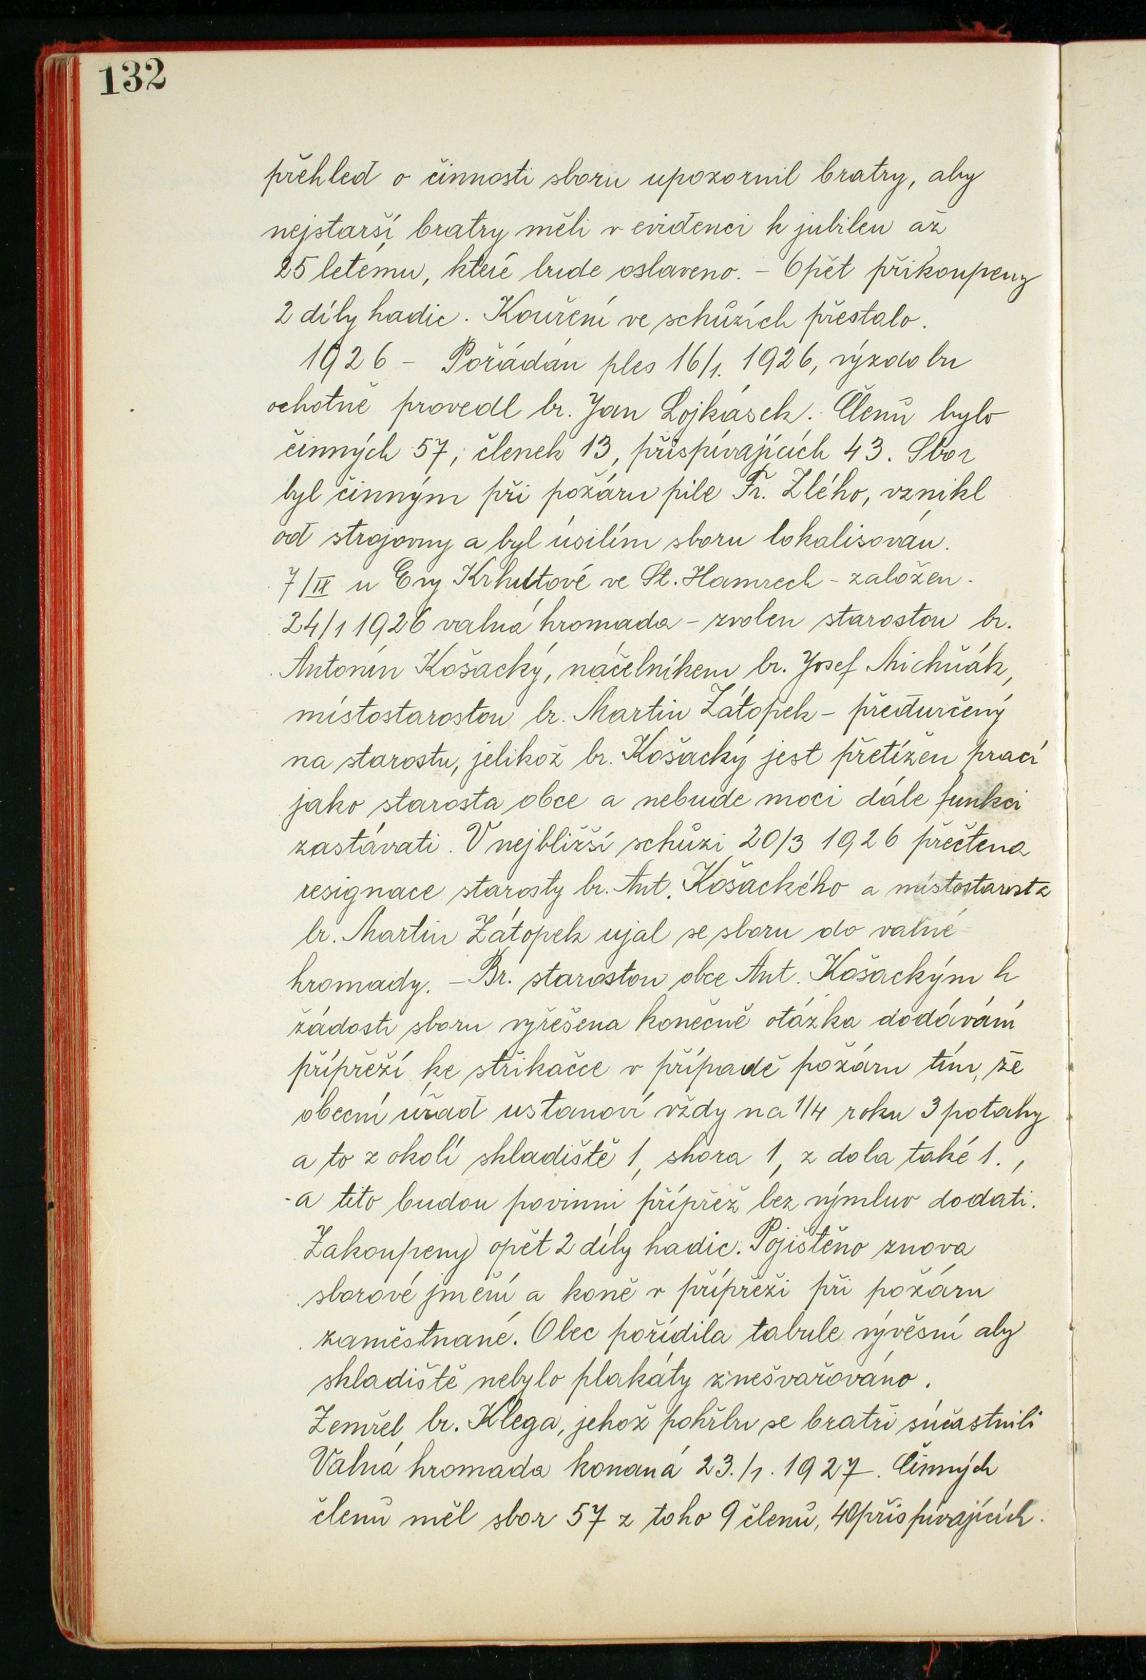 132
přehled o činnosti sboru upozornil bratry, aby
nejstarší bratry měli v evidenci k jubileu až
25 letému, které bude oslaveno. – Opět přikoupeny
2 díly hadic. Kouření ve schůzích přestalo.
1926 – Pořádán ples 16/1. 1926, výzdobu
ochotně provedl br. Jan Lojkásek. Členů bylo
činných 57, členek 13, přispívajících 43. Sbor
byl činným při požáru pile Fr. Zlého, vznikl
od strojovny a byl úsilím sboru lokalisován.
7/IX u Evy Krhutové ve St. Hamrech – založen.
24/1 1926 valná hromada – zvolen starostou br.
Antonín Košacký, náčelníkem br. Josef Michňák,
místostarostou br. Martin Zátopek – předurčený
na starostu, jelikož br. Košacký jest přetížen prací
jako starosta obce a nebude moci dále funkci
zastávati. V nejbližší schůzi 20/3 1926 přečtena
resignace starosty br. Ant. Košackého a místostarosta
br. Martin Zátopek ujal se sboru do valné
hromady. – Br. starostou obce Ant. Košackým k
žádosti sboru vyřešena konečně otázka dodávání
přípřeží ke stříkačce v případě požáru tím, že
obecní úřad ustanoví vždy na 1/4 roku 3 potahy
a to z okolí skladiště 1, shora 1, z dola také 1.,
a tito budou povinni přípřež bez výmluv dodati.
Zakoupeny opět 2 díly hadic. Pojištěno znova
sborové jmění a koně v přípřeži při požáru
zaměstnané. Obec pořídila tabule vývěsní aby
skladiště nebylo plakáty znešvařováno.
Zemřel br. Klega, jehož pohřbu se bratři súčastnili
Valná hromada konaná 23./1. 1927. Činných
členů měl sbor 57 z toho 9 členů, 40 přispívajících.